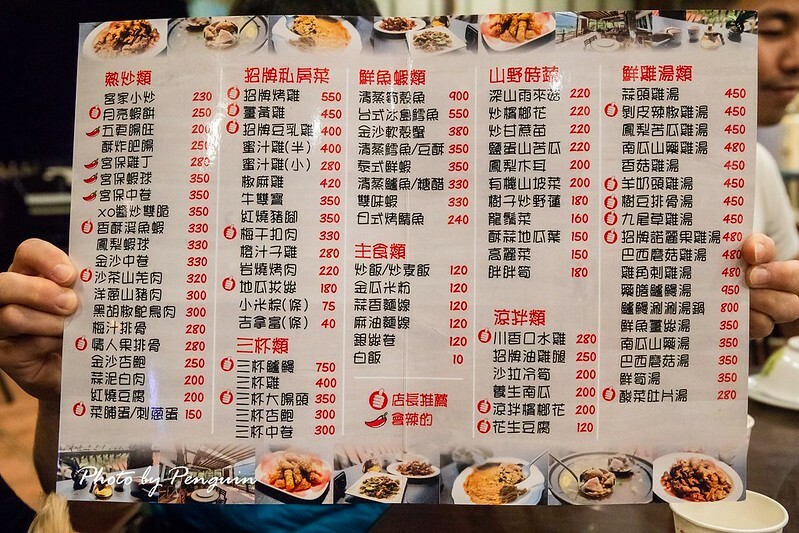 熱炒類
宮家小炒 230
月亮蝦餅 250
五更腸旺 200
酥炸肥腸 250
宮保雞丁 280
宮保蝦球 350
宮保中卷 350
xo醬炒雙脆 350
香酥溪魚蝦 330
鳳梨蝦球 330
金沙中卷 350
沙茶山羌肉 320
洋蔥山豬肉 300
黑胡椒鴕鳥肉 300
梅汁排骨 280
情人果排骨 280
金沙杏鮑 250
蒜泥白肉 200
紅燒豆腐 200
菜脯蛋/刺蔥蛋 150
招牌私房菜
招牌烤雞 550
薑黃雞 450
招牌豆乳雞 400
蜜汁雞(半) 400
蜜汁雞(小) 280
椒麻雞 420
牛雙寶 350
紅燒豬腳 350
梅干扣肉 330
橙汁子雞 280
岩燒烤肉 220
地瓜拔絲 180
小米粽(條) 75
吉拿富(條) 40
三杯類
三杯鱸鰻 750
三杯雞 400
三杯大腸頭 350
三杯杏鮑 300
三杯中卷 300
鮮魚蝦類
清蒸筍殼魚 900
台式冰島鱈魚 550
金沙軟殼蟹 380
清蒸鱈魚/豆酥 350
泰式鮮蝦 350
清蒸鱸魚/糖醋 330
雙味蝦 330
日式烤鯖魚 240
主食類
炒飯/炒麥飯 120
金瓜米粉 120
蒜香麵線 120
麻油麵線 120
銀絲卷 120
白飯 10
店長推薦
會辣的
山野時蔬
深山雨來菇 220
炒檳榔花 220
炒甘蔗苗 220
鹽蛋山苦瓜 220
鳳梨木耳 200
有機山坡菜 200
樹子炒野蓮 180
龍鬚菜 160
酥蒜地瓜葉 150
高麗菜 150
胖胖筍 180
涼拌類
川香口水雞 280
招牌油雞腿 250
沙拉冷筍 200
養生南瓜 200
涼拌檳榔花 200
花生豆腐 120
鮮雞湯類
蒜頭雞湯 450
剝皮辣椒雞湯 450
鳳梨苦瓜雞湯 450
南瓜山藥雞湯 480
香菇雞湯 450
羊奶頭雞湯 450
樹豆排骨湯 450
九尾草雞湯 450
招牌諾麗果雞湯 480
巴西蘑菇雞湯 480
雞角刺雞湯 480
藥膳鱸鰻湯 950
鱸鰻涮涮湯鍋 800
鮮魚薑絲湯 350
南瓜山藥湯 350
巴西蘑菇湯 350
鮮筍湯 350
酸菜肚片湯 280
Photo by Penguin